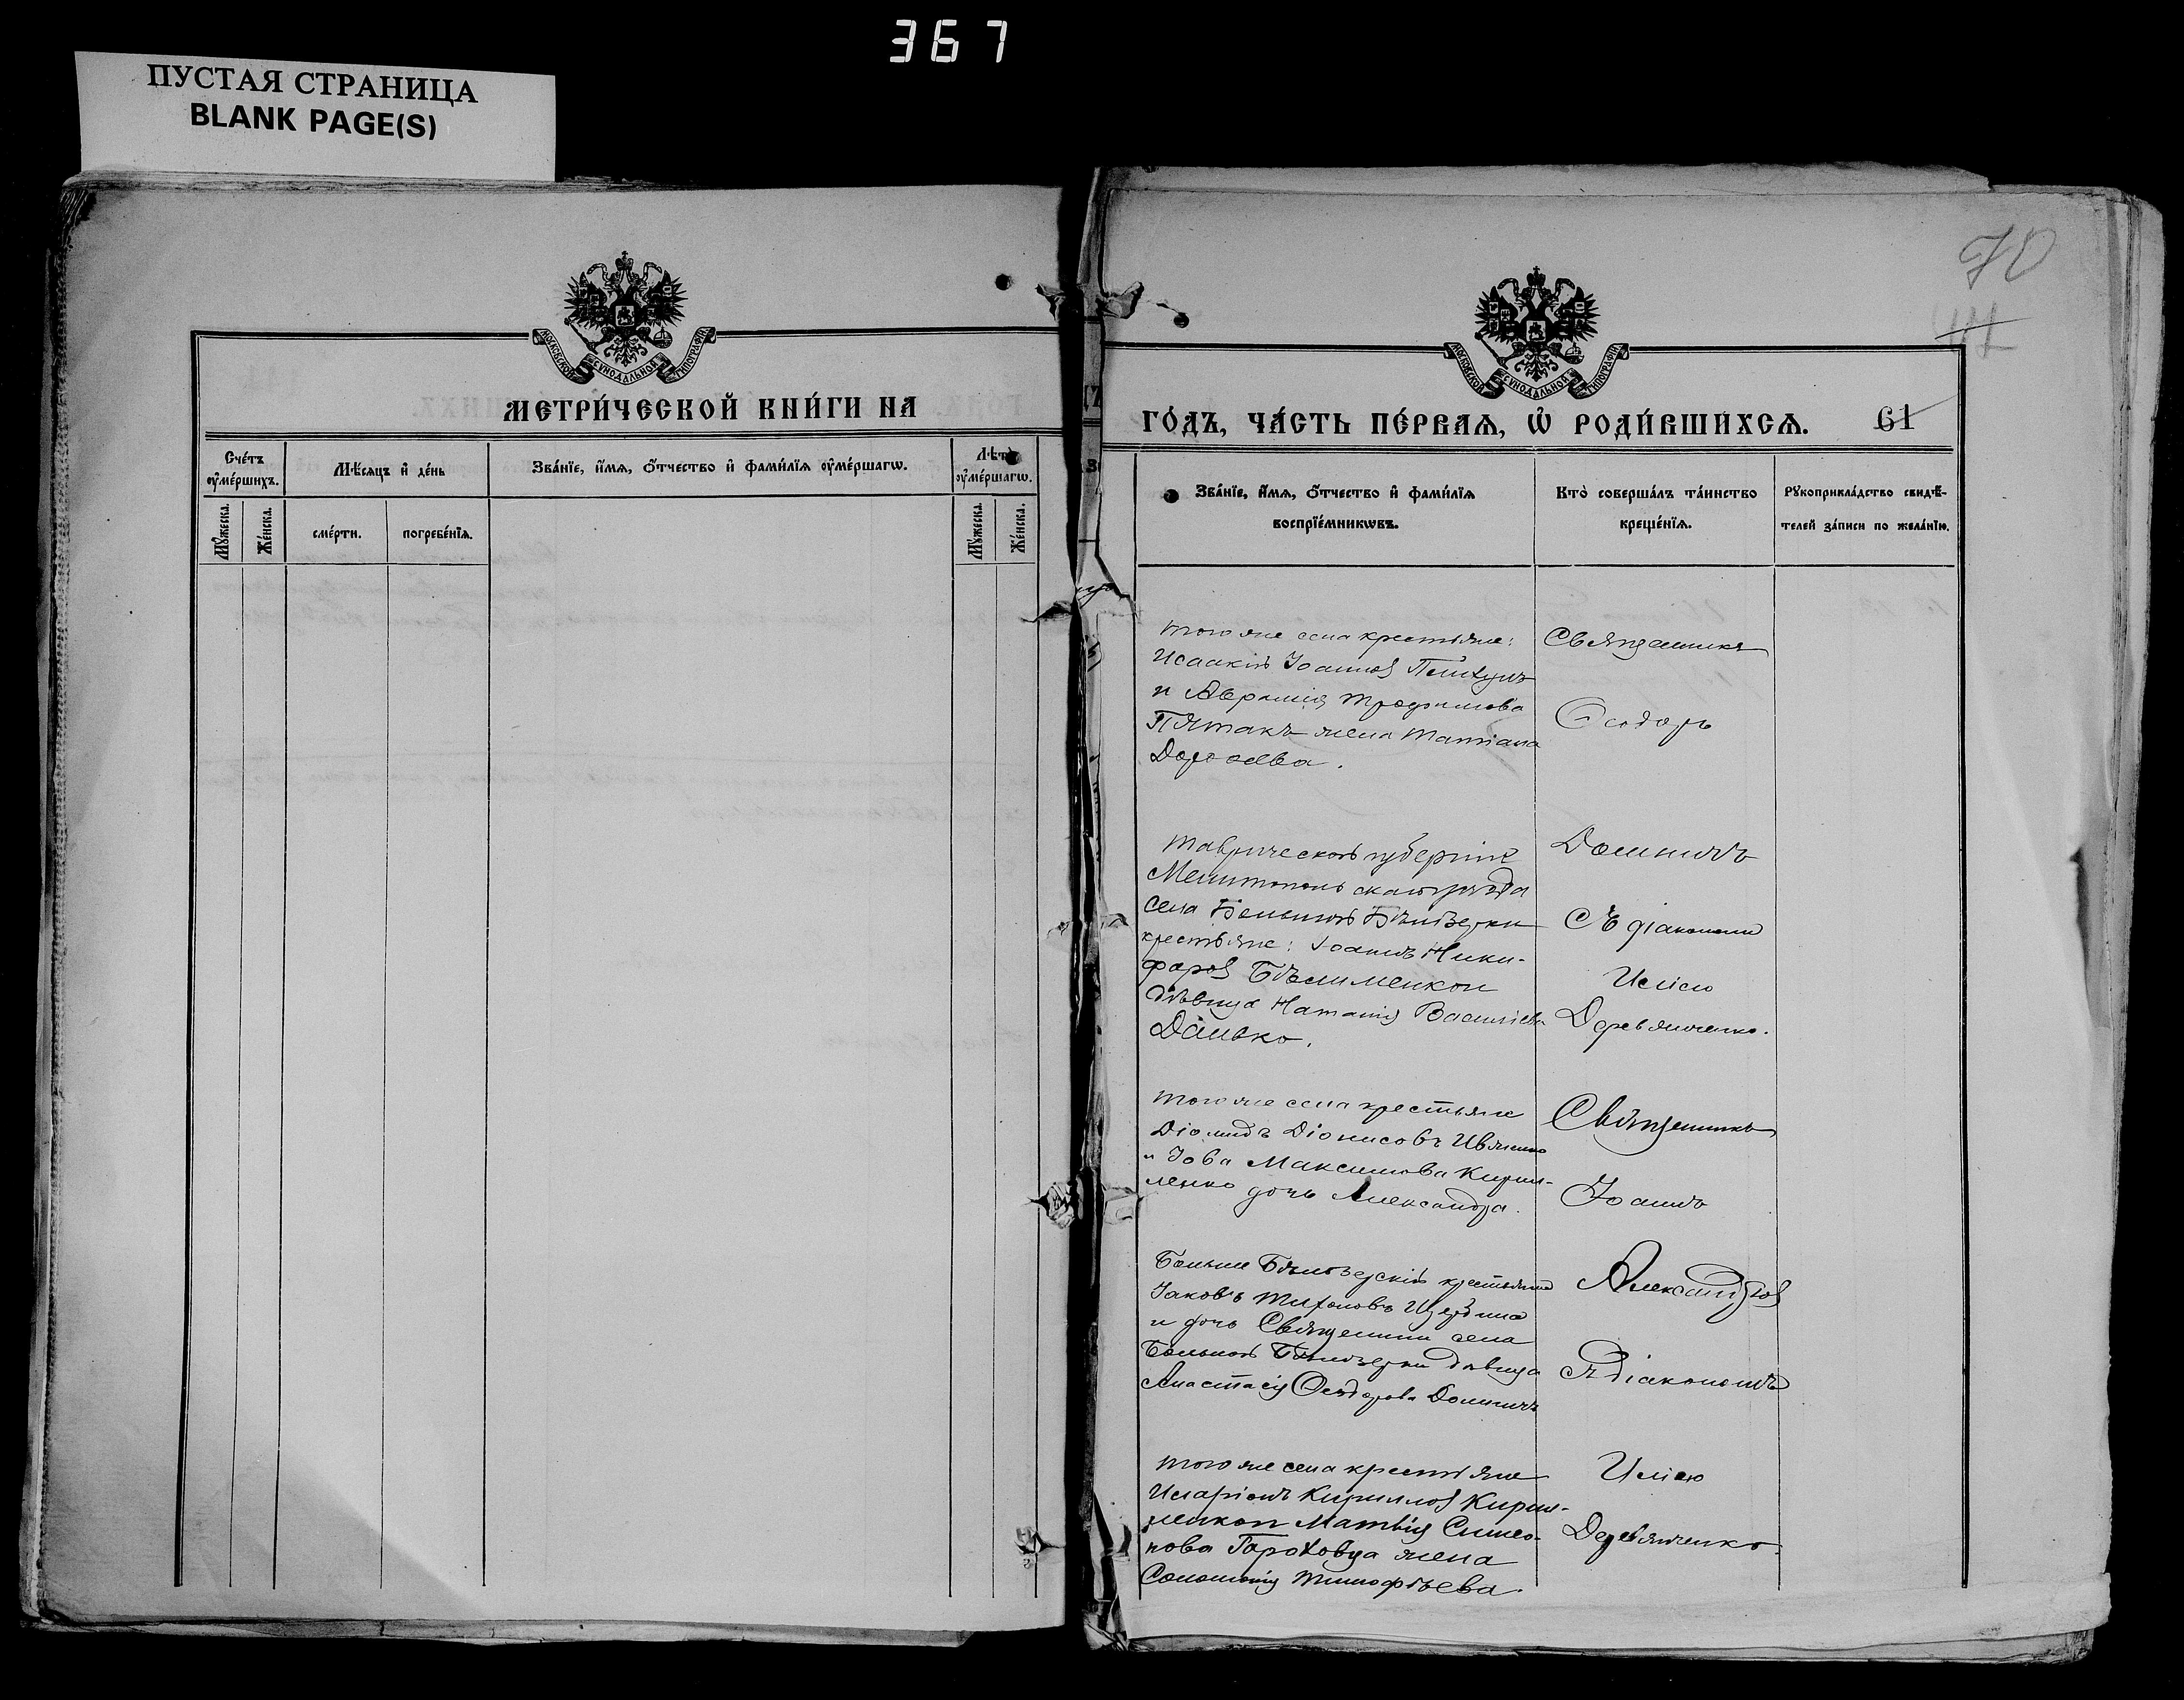 367
ПУСТАЯ СТРАНИЦА
BLANK PAGE(S)
МОСКОВСКОЙ СѴНОДАЛЬНОЙ ТИПОГРАФІИ
МЕТРИ́ЧЕСКОЙ КНИ́ГИ НА
Сче́тъ ᲂу҆ме́ршихъ.
Мѣ́сяцъ и҆ де́нь
Зва́нїе, и҆́мѧ, ѻ҆́тчество и҆ фами́лїѧ ᲂу҆ме́ршагѡ.
Лѣ́та ᲂу҆ме́ршагѡ.
Мꙋ́жеска.
Же́нска.
сме́рти.
погребе́нїѧ.
Мꙋ́жеска.
Же́нска.
70
МОСКОВСКОЙ СѴНОДАЛЬНОЙ ТИПОГРАФІИ
ГО́ДЪ, ЧА́СТЬ ПЕ́РВАѦ, Ѽ РОДИ́ВШИХСѦ.
61
Зва́нїе, и҆́мѧ, ѻ҆́тчество и҆ фами́лїѧ
воспрїе́мникѡвъ.
Кто̀ соверша́лъ та́инство
креще́нїѧ.
Рꙋкоприкла́дство свидѣ́-
телей за́писи по жела́нїю.
того же села крестьяне:
Исаакій Іоаннов
и Трофимова
Пятакъ жена Татіана
Дороѳеева.
Священникъ
Ѳеодоръ
Таврической губерніи
Мелитопольскаго уѣзда
села Большой Бѣлозерки
крестьяне: Іоаннъ Ники-
форов Бѣлименко и
дѣвица Наталія Васильева
Данько.
Доминичъ
съ діакономъ
Иліею
Деревянченко.
того же села крестьяне
Діомидъ Діонисовъ Ивженко
и Іова Максимова Кирил-
ленко дочь Александра.
Священникъ
Іоаннъ
Больше Бѣлозерскій крестьянинъ
Іаковъ Тихоновъ Щербина
и дочь Священника села
Большой Бѣлозерки дѣвица
Анастасія Ѳеодорова Доминичъ
Александров
съ діакономъ
того же села крестьяне
Иларіонъ Кириллов Кирил-
ленко и Матвѣя Симео-
нова Гороховца жена
Соломонія Тимофѣева.
Иліею
Деревянченко.